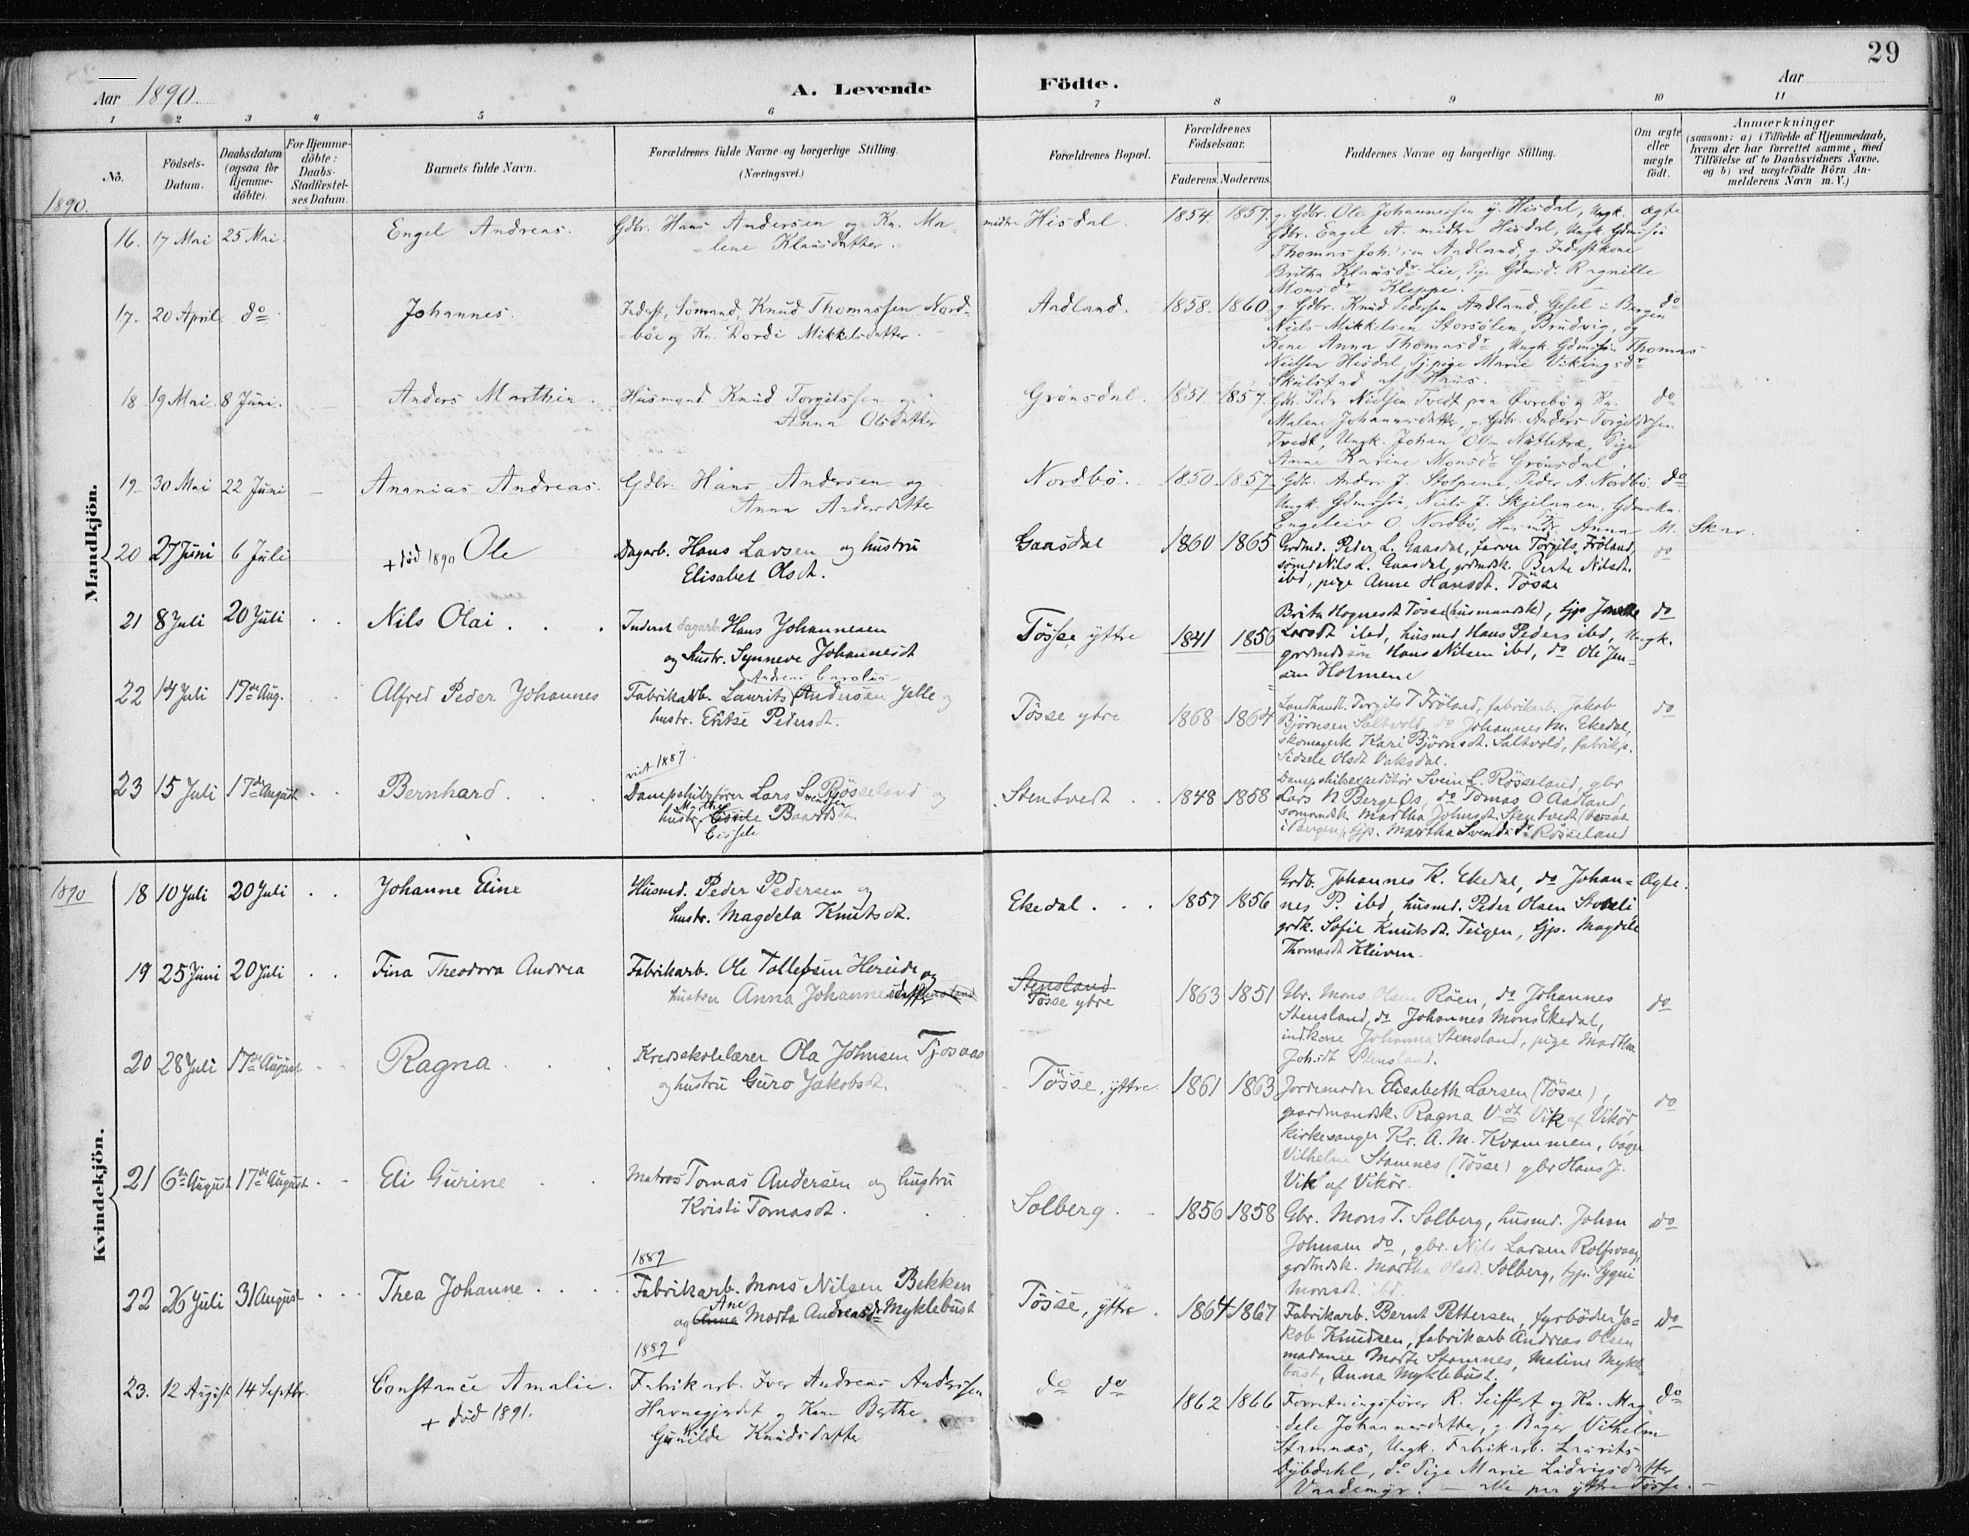 29
Aar 1890.
A. Levende Födte.
Aar
1 2 3 4 5 6 7 8 9 10 11
No.
Födsels-Datum.
Daabsdatum (ogsaa for Hjemme-döbte).
For Hjemme-döbte: Daabs-Stadfæstel-ses Datum.
Barnets fulde Navn.
Forældrenes fulde Navne og borgerlige Stilling. (Næringsvei.)
Forældrenes Bopæl.
Forældrenes Födselsaar.
Faderens. Moderens.
Faddernes Navne og borgerlige Stilling.
Om ægte eller uægte födt.
Anmærkninger
(saasom: a) i Tilfælde af Hjemmedaab,
hvem der har forrettet samme, med
Tilföielse af to Daabsvidners Navne.
og b) ved uægtefödte Börn An-
melderens Navn m. V.)
1890.
Mandkjön.
16. 17 Mai 25 Mai. Engel Andreas. Gdbr. Hans Andersen og Kn. Ma-
lene Klausdatter. midtre Hisdal. 1854. 1857. g. Gdbr. Ole Johannessen y. Hisdal, Ungk. ægte
Gdbr. Engel A. midtre Hisdal, Ungk Gdmssön
Thomas Joh.sen Aadland, g. Inderstkone
Britha Klausdr. Lie, Pige Gdmsd. Ragnille
Monsdr. Kleppe.
17. 20 April do Johannes. Inderst, Sömand, Knud Thomassen Nord-
böe og Kn. Dordi Mikkelsdatter. Aadland. 1858. 1860. g. Gdbr. Knud Pedersen Aadland, Gesel i Bergen do
Niels Mikkelsen Storsölen, Brudvig, og
Kone Anna Thomasdr, Ungk. Gdmssön Thomas
Nielsen Hisdal, Tj.pige Marie Vikingsdr
Skulstad af Haus.
18 19 Mai 8 Juni. Anders Marthin. Husmand Knud Torgilssen og
Anna Olsdatter Grönsdal. 1851. 1857. Gdbr. Peder Nielsen Tvedt paa Övrebö og Kn. do
Malene Johannesdatter, g. Gdbr. Anders Torgildsen
Tvedt, Ungk. Johan Olsen Nætletræ, Pige
Anne Karine Monsdr Grönsdal.
19. 30 Mai 22 Juni Ananias Andreas. Gdbr. Hans Andersen og
Anna Andersdatter Nordbö. 1850. 1857. Gdbr. Anders J. Stolpene, Peder A. Nordbö. do
Ungk. Gdmssön, Niels J. Skjelanen, Gdmskn.
Engeleiv O. Nordbö, Husmdr. Anna M. Skar.
20 27 Juni 6 Juli + död 1890 Ole Dagarb. Hans Larsen og hustru
Elisabet Olsdt. Gaasdal 1860 1865 Grdmd. Peder L. Gaasdal, farver Torgils Fröland, do
sömd Nils L. Gaasdal, grdmdsk. Berte Nilsdt.
ibd, pige Anne Hansdt. Tösse
21 8 Juli 20 Juli Nils Olai Inderst dagarb. Hans Johannesen
og hustr. Synneve Johannesdt Tösse, yttre 1841 1856 Brita Hognesdt Tösse (husmandsk), tjp Janikke do
Larsdt ibd, husmd. Hans Peders ibd, Ungk.
grdmdssön Hans Nilsen ibd, do Ole Jen-
sen Holmene
22 14 Juli 17de Aug. Alfred Peder Johannes Fabrikarb. Laurits Andreas Carolus Andersen Jelle og
hustr. Eritse Pedersdt. Tösse ytre 1868 1864 Landhandl. Torgils T Fröland, fabrikarb. Jakob do
Björnsen Saltvold, do Johannes M. Ekedal,
skomagerk Kari Björnsdt. Saltvold, fabrikp.
Sidsele Olsdt Vaksdal.
viet 1887.
23 15 Juli 17de August Bernhard Dampskibsförer Lars Svendsen Rösseland og
hustr. Marthe Cissele Baardsdt. Stentvedt 1848 1858 Dampskibsexpeditör Svein L. Rösseland, gbr
Lars N Berge Os, do Tomas O Aadland,
sömandsk Martha Johnsdt. Stentvedt (bosat
i Bergen), tjp. Martha Svendsdr Rösseland
1890
Kvindekjön.
18 10 Juli 20 Juli Johanne Eline Husmd. Peder Pedersen og
hustr. Magdela Knutsdt. Ekedal 1857 1856 Grdb. Johannes K. Ekedal, do Johan- Ægte.
nes P. ibd, husmd. Peder Olsen Storeli
grdk. Sofie Knutsdt. Teigen, tjp. Magdele
Thomasdt Kleiven
19 25 Juni 20 Juli Tina Theodora Andrea Fabrikarb. Ole Tollefsen Hereide og
hustru Anna Johannesdatter Stensland Stensland
Tösse ytre 1863 1851 Gbr. Mons Olsen Röen, do Johannes do
Stensland, do Johannes Mons Ekedal,
indkone Johanna Stensland, pige Martha
Johsdt Stensland.
20 28 Juli 17de August Ragna Kredsskolelærer Ola Johnsen Tjosaas
og hustru Guro Jakobsdt. Tösse, yttre 1861 1863 Jordemoder Elisabeth Larsen (Tösse), do
gaardmandsk. Ragna Vdt Vik af Vikör
kirkesanger Kr. A. M. Kvammen, bager
Vilhelm Stamnes (Tösse) gbr Hans J.
Vik af Vikör.
21 6te August 17de August Eli Gurine Matros Tomas Andersen og hustru
Kristi Tomasdt. Solberg 1856 1858 Gbr. Mons T. Solberg, husmd. Johan do
Johnsen do, gbr. Nils Larsen Rolfsvaag,
grdmdsk. Martha Olsdt. Solberg, tjp. Sygni
Monsdt. ibd.
1889
22 26 Juli 31 August Thea Johanne Fabrikarb. Mons Nilsen Bekken
og Anna Ane Marta Andreasdr Myklebust Tösse, yttre 1864 1867 Fabrikarb. Bernt Pettersen, fyrböder Ja- do
kob Knudsen, fabrikarb Andreas Olsen
madame Marte Stamnes, Maline Mykle-
bust, Anna Myklebust.
1889
23. 12 August 14 Septbr. Constance Amalie.
+ död 1891. Fabrikarb. Iver Andreas Andersen
Havnegjerdet og Kone Berthe
Gunilde Knudsdatter do do 1862 1866 Forretningsförer R. Seiffert og Kn. Mag- do
dele Johannesdatter, g. Bager Vilhelm
Stamnæs, Ungk. Fabrikarb. Laurits
Dybdahl, do Pige Marie Ludvigsdatter
Vaademyr. — alle paa yttre Tösse.